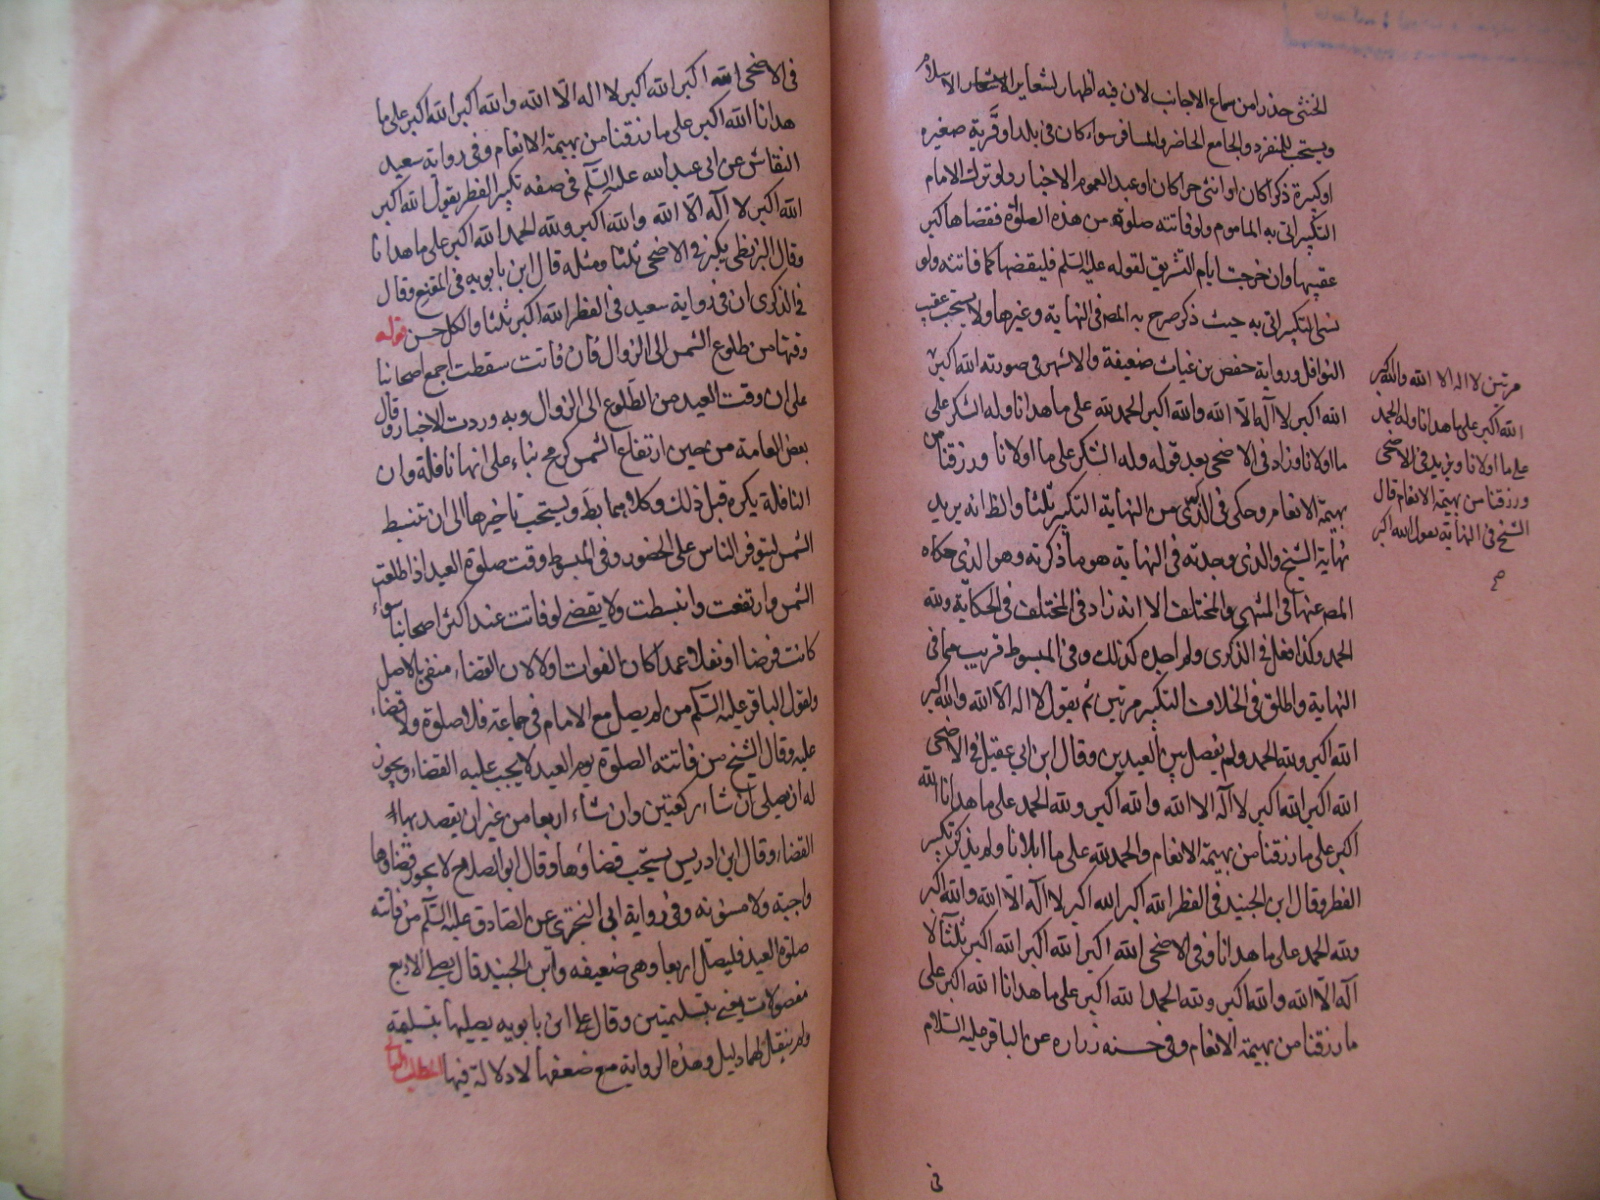 الخنثى حذرا من سماع الاجانب لان فيه اظهار لشعاير الاسلام
ويستحب للمنفرد والجامع الحاضر والمسافر سواء كان في بلد او قرية صغيره
او كبيرة ذكرا كان او انثى حرا كان او عبد العموم الاخبار ولو ترك الامام
التكبير اتى به الماموم ولو فاتته صلوة من هذه الصلوة فقضاها كبر
عقيبها وان خرجت ايام التشريق لقوله عليه السلم فليقضها كما فاتته ولو
نسى التكبير اتى به حيث ذكر صرح به المص في النهاية وغيرها ولا يستحب عقيب
النوافل ورواية حفص بن غياث ضعيفة والاشهر في صورته الله اكبر
الله اكبر لا اله الا الله والله اكبر الحمد لله على ما هدانا وله الشكر على
ما اولانا وزاد في الاضحى بعد قوله وله الشكر على ما اولانا ورزقنا من
بهيمة الانعام وحكى في الذكرى عن النهاية التكبير ثلثا والظ انه يريد
نهاية الشيخ والذى وجدته في النهاية هو ما ذكرته وهو الذى حكاه
المص عنها في المنتهى والمختلف الا انه زاد في المختلف في الحكاية ولله
الحمد وكذا فعل في الذكرى ولم اجده كذلك وفي المبسوط قريب مما في
النهاية واطلق في الخلاف التكبير مرتين ثم يقول لا اله الا الله والله اكبر
الله اكبر ولله الحمد ولم يفصل بين العيدين وقال ابن ابي عقيل في الاضحى
الله اكبر الله اكبر لا اله الا الله والله اكبر ولله الحمد على ما هدانا الله
اكبر على ما رزقنا من بهيمة الانعام والحمد لله على ما ابلانا ولم يذكر تكبير
الفطر وقال ابن الجنيد في الفطر الله اكبر الله اكبر لا اله الا الله والله اكبر
ولله الحمد على ما هدانا وفي الاضحى الله اكبر الله اكبر الله اكبر ثلثا لا
اله الا الله والله اكبر ولله الحمد الله اكبر على ما هدانا الله اكبر على
ما رزقنا من بهيمة الانعام وفي حسنه زراره عن الباقر عليه السلام
في
مرتين لا اله الا الله والله اكبر
الله اكبر على ما هدانا وله الحمد
على ما اولانا ويزيد في الاضحى
ورزقنا من بهيمة الانعام قال
الشيخ في النهاية يقول الله اكبر
في الاضحى الله اكبر الله اكبر لا اله الا الله والله اكبر الله اكبر على ما
هدانا الله اكبر على ما رزقنا من بهيمة الانعام وفي رواية سعيد
النقاش عن ابى عبد الله عليه السلم في صفه تكبير الفطر يقول الله اكبر
الله اكبر لا اله الا الله والله اكبر ولله الحمد الله اكبر على ما هدانا
وقال البزنطى يكبر في الاضحى ثلثا ومثله قال ابن بابويه في المقنع وقال
في الذكرى ان في رواية سعيد في الفطر الله اكبر ثلثا والكل حسن قوله
وقتها من طلوع الشمس الى الزوال فان فاتت سقطت اجمع اصحابنا
على ان وقت العيد من الطلوع الى الزوال وبه وردت الاخبار وقال
بعض العامة من حين ارتفاع الشمس بناء على انها نافلة وان
النافلة يكره قبل ذلك وكلاهما بط ويستحب تاخيرها الى ان تنبسط
الشمس ليتوفر الناس على الحضور وفي المبسوط وقت صلوة العيد اذا طلعت
الشمس وارتفعت وانبسطت ولا يقضى لو فاتت عند اكثر اصحابنا سواء
كانت فرضا او نفلا عمدا كان الفوات او لا لان القضاء منفى بالاصل
ولقول الباقر عليه السلم من لم يصل مع الامام في جماعة فلا صلوة ولا قضاء
عليه وقال الشيخ من فاتته الصلوة يوم العيد لا يجب عليه القضاء ويجوز
له ان يصلى ان شاء ركعتين وان شاء اربعا من غير ان يقصد بها
القضاء وقال ابن ادريس يستحب قضاؤها وقال ابو الصلاح لا يجوز قضاؤها
واجبة ولا مسنونه وفي رواية ابى البخترى عن الصادق عليه السلم من فاتته
صلوة العيد فليصل اربعا وهى ضعيفه وابن الجنيد قال يصلى الاربع
مفصولات يعنى بتسليمتين وقال على ابن بابويه يصليها بتسليمة
ولم ينقل لهما دليل وهذه الرواية مع ضعفها لا دلالة فيها